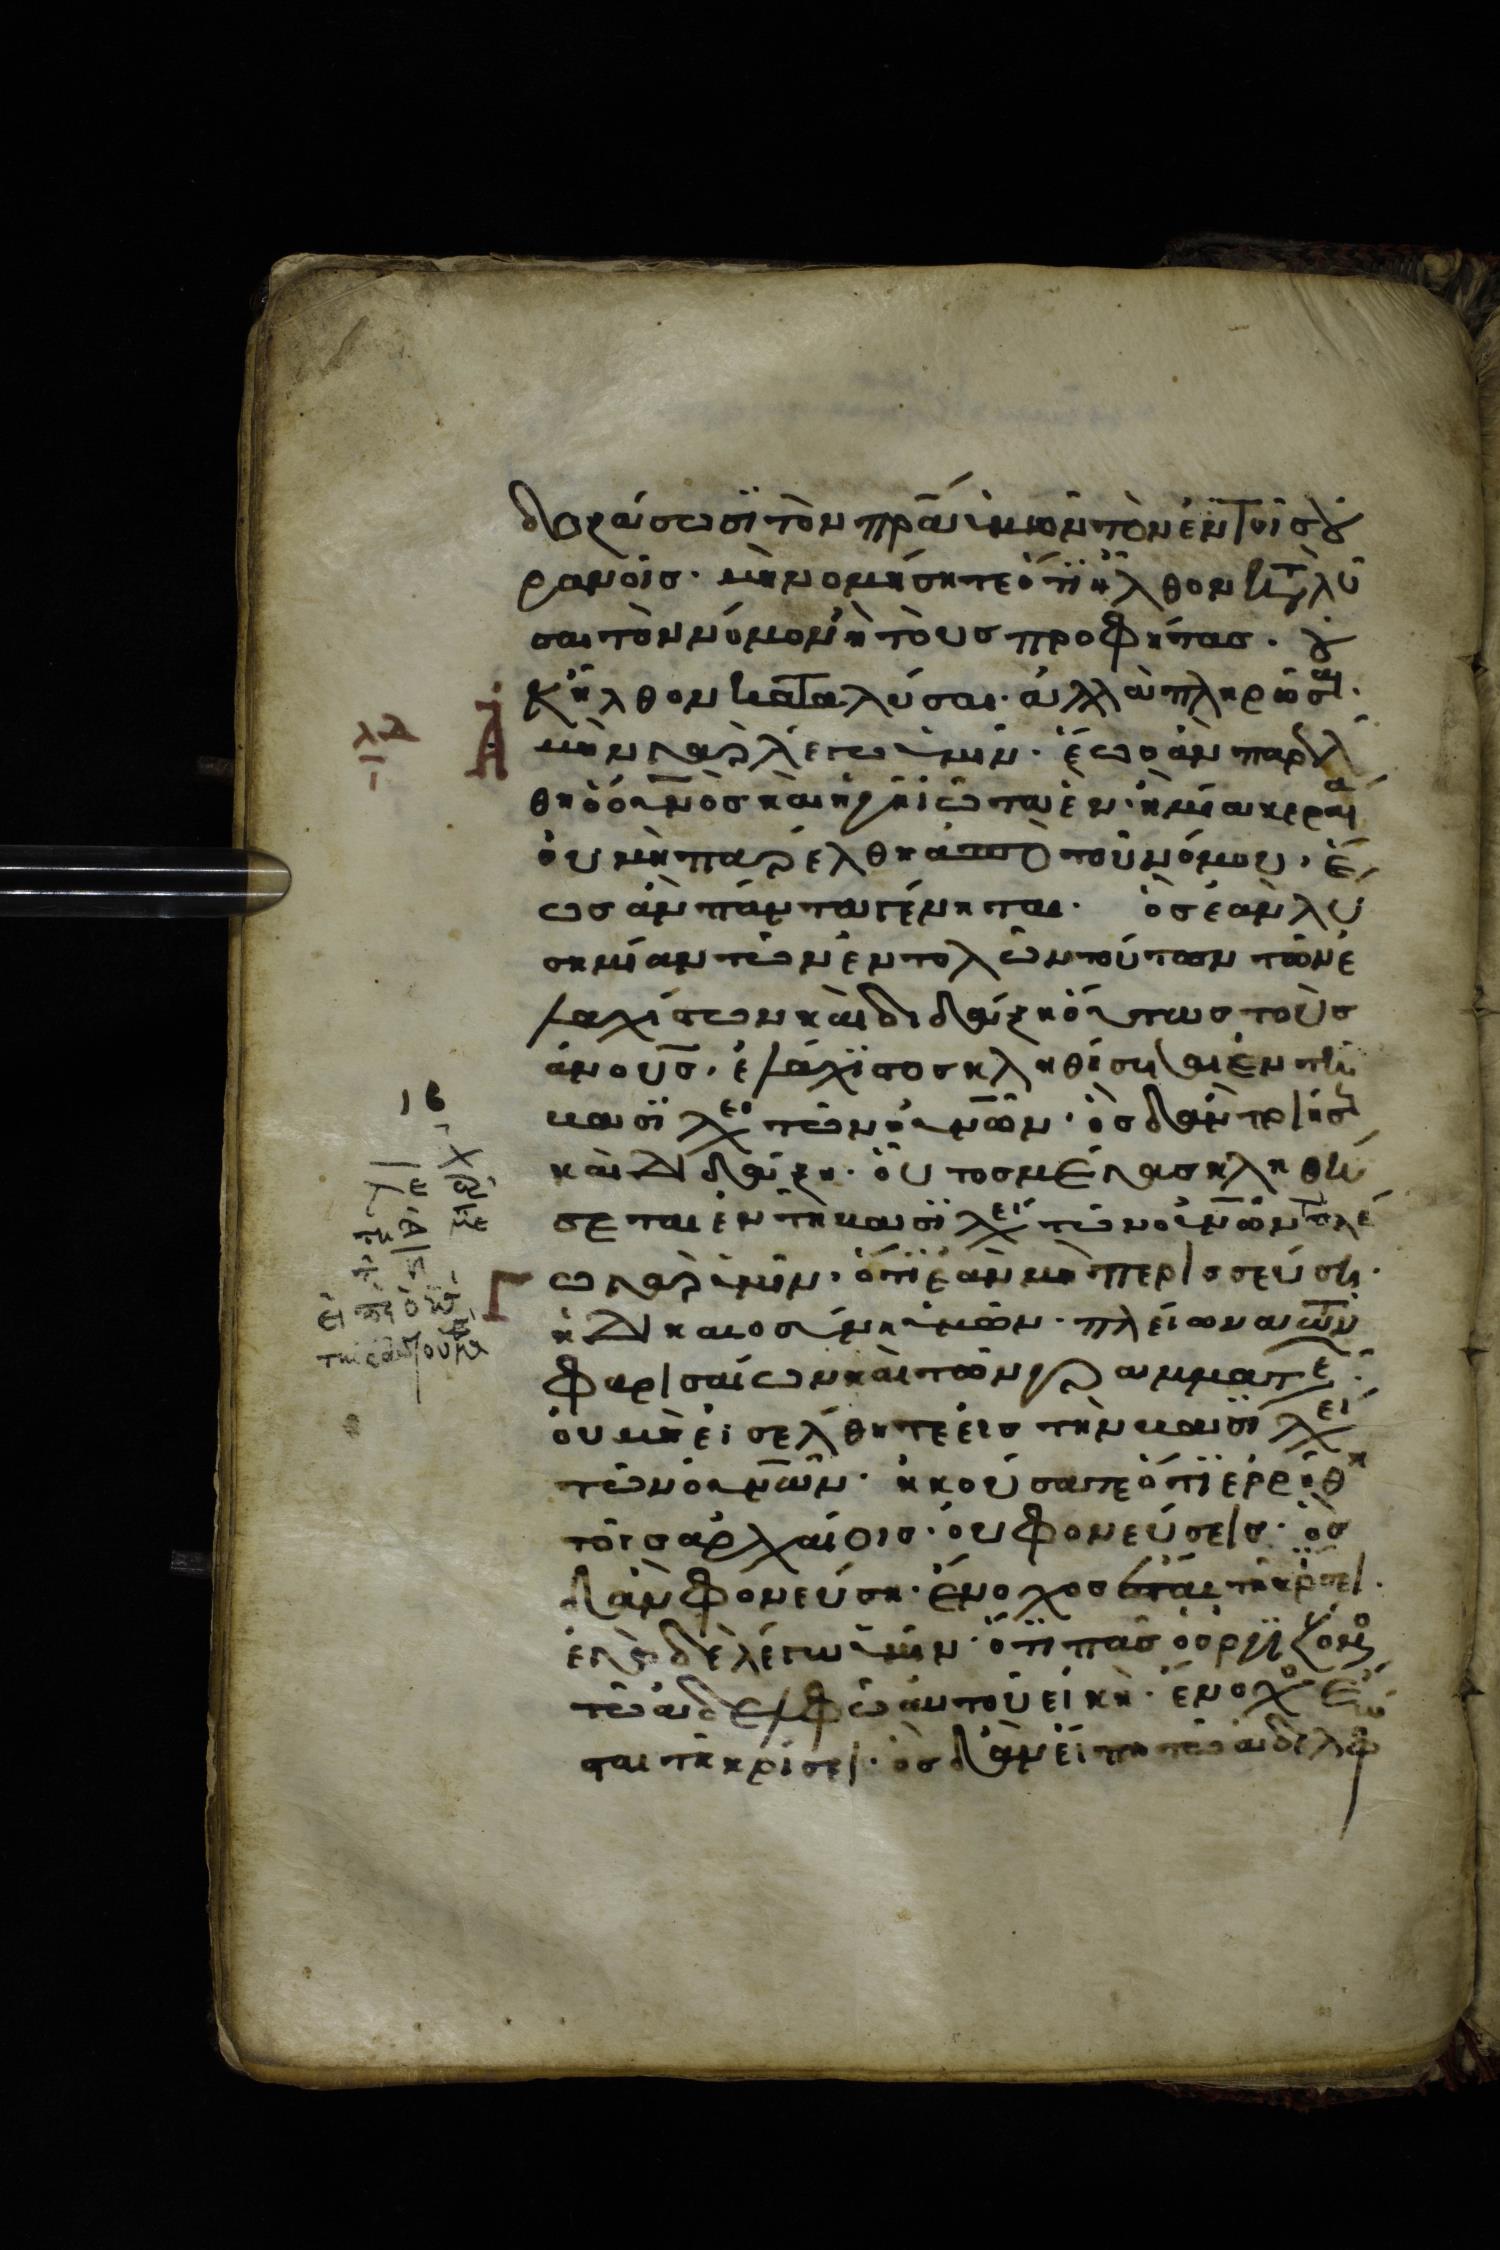 δοξάσωσϊ τὸν πρ̅α ὑμῶν τὸν ἐν τοῖς οὐ
ρανοῖς· μὴ νομήσητε ὅτϊ ἦλθον κατὰ λῦ
σαι τὸν νόμον ἢ τοὺς προφήτας· οὐ
κ ἦλθον καταλύσαι· ἀλλὰ πληρώσαι·
λδ
ἀμὴν γὰρ λέγω ὑμῖν· ἕως ἂν παρέλ
θη ὁ ου̅νος καὶ ἡ γῆ ἰῶτα ἓν· ἢ μία κεραία
οὐ μὴ παρέλθη ἀπὸ τοῦ νόμου, ἕ
ως ἂν πάντα γένηται· ὃς ἐὰν λύ
ση μίαν τῶν ἐντολῶν τούτων τῶν ἐ
λαχίστων καὶ διδάξη οὕτως τοὺς
ἀν̅ους, ἐλάχϊστος κληθήσεται ἐν τῆ
βασϊλεία τῶν οὐν̅ῶν· ὃς δ' ἂν ποιήσει
καὶ διδάξη· οὗτος μέγας κληθή
σεται ἐν τῆ βασϊλεία τῶν οὐν̅ῶν λέ
γω γὰρ ὑμῖν, ὅτϊ ἐὰν μὴ περισσεύση·
ἡ δικαιοσύνη ὑμῶν· πλείωνα τῶν
φαρισαίων καὶ τῶν γραμματέ·
οὐ μὴ εἰσέλθητε εἰς τὴν βασϊλεί
τῶν οὐν̅ῶν· ἠκούσατε ὅτϊ ἐρρέθη
τοῖς ἀρχαίοις· οὐ φονεύσεις· ὃς
δ' ἂν φονεύση· ἔνοχος ἔσται τῆ κρίσει·
ἐγὼ δὲ λέγω ὑμῖν· ὅτϊ πᾶς ὁ ὀργϊζόμενος
τῶ ἀδελφῶ αὐτοῦ εἰκῆ· ἔνοχος ἔ
σται τῆ κρίσει· ὃς δ' ἂν εἴπη τῶ ἀδελφῶ